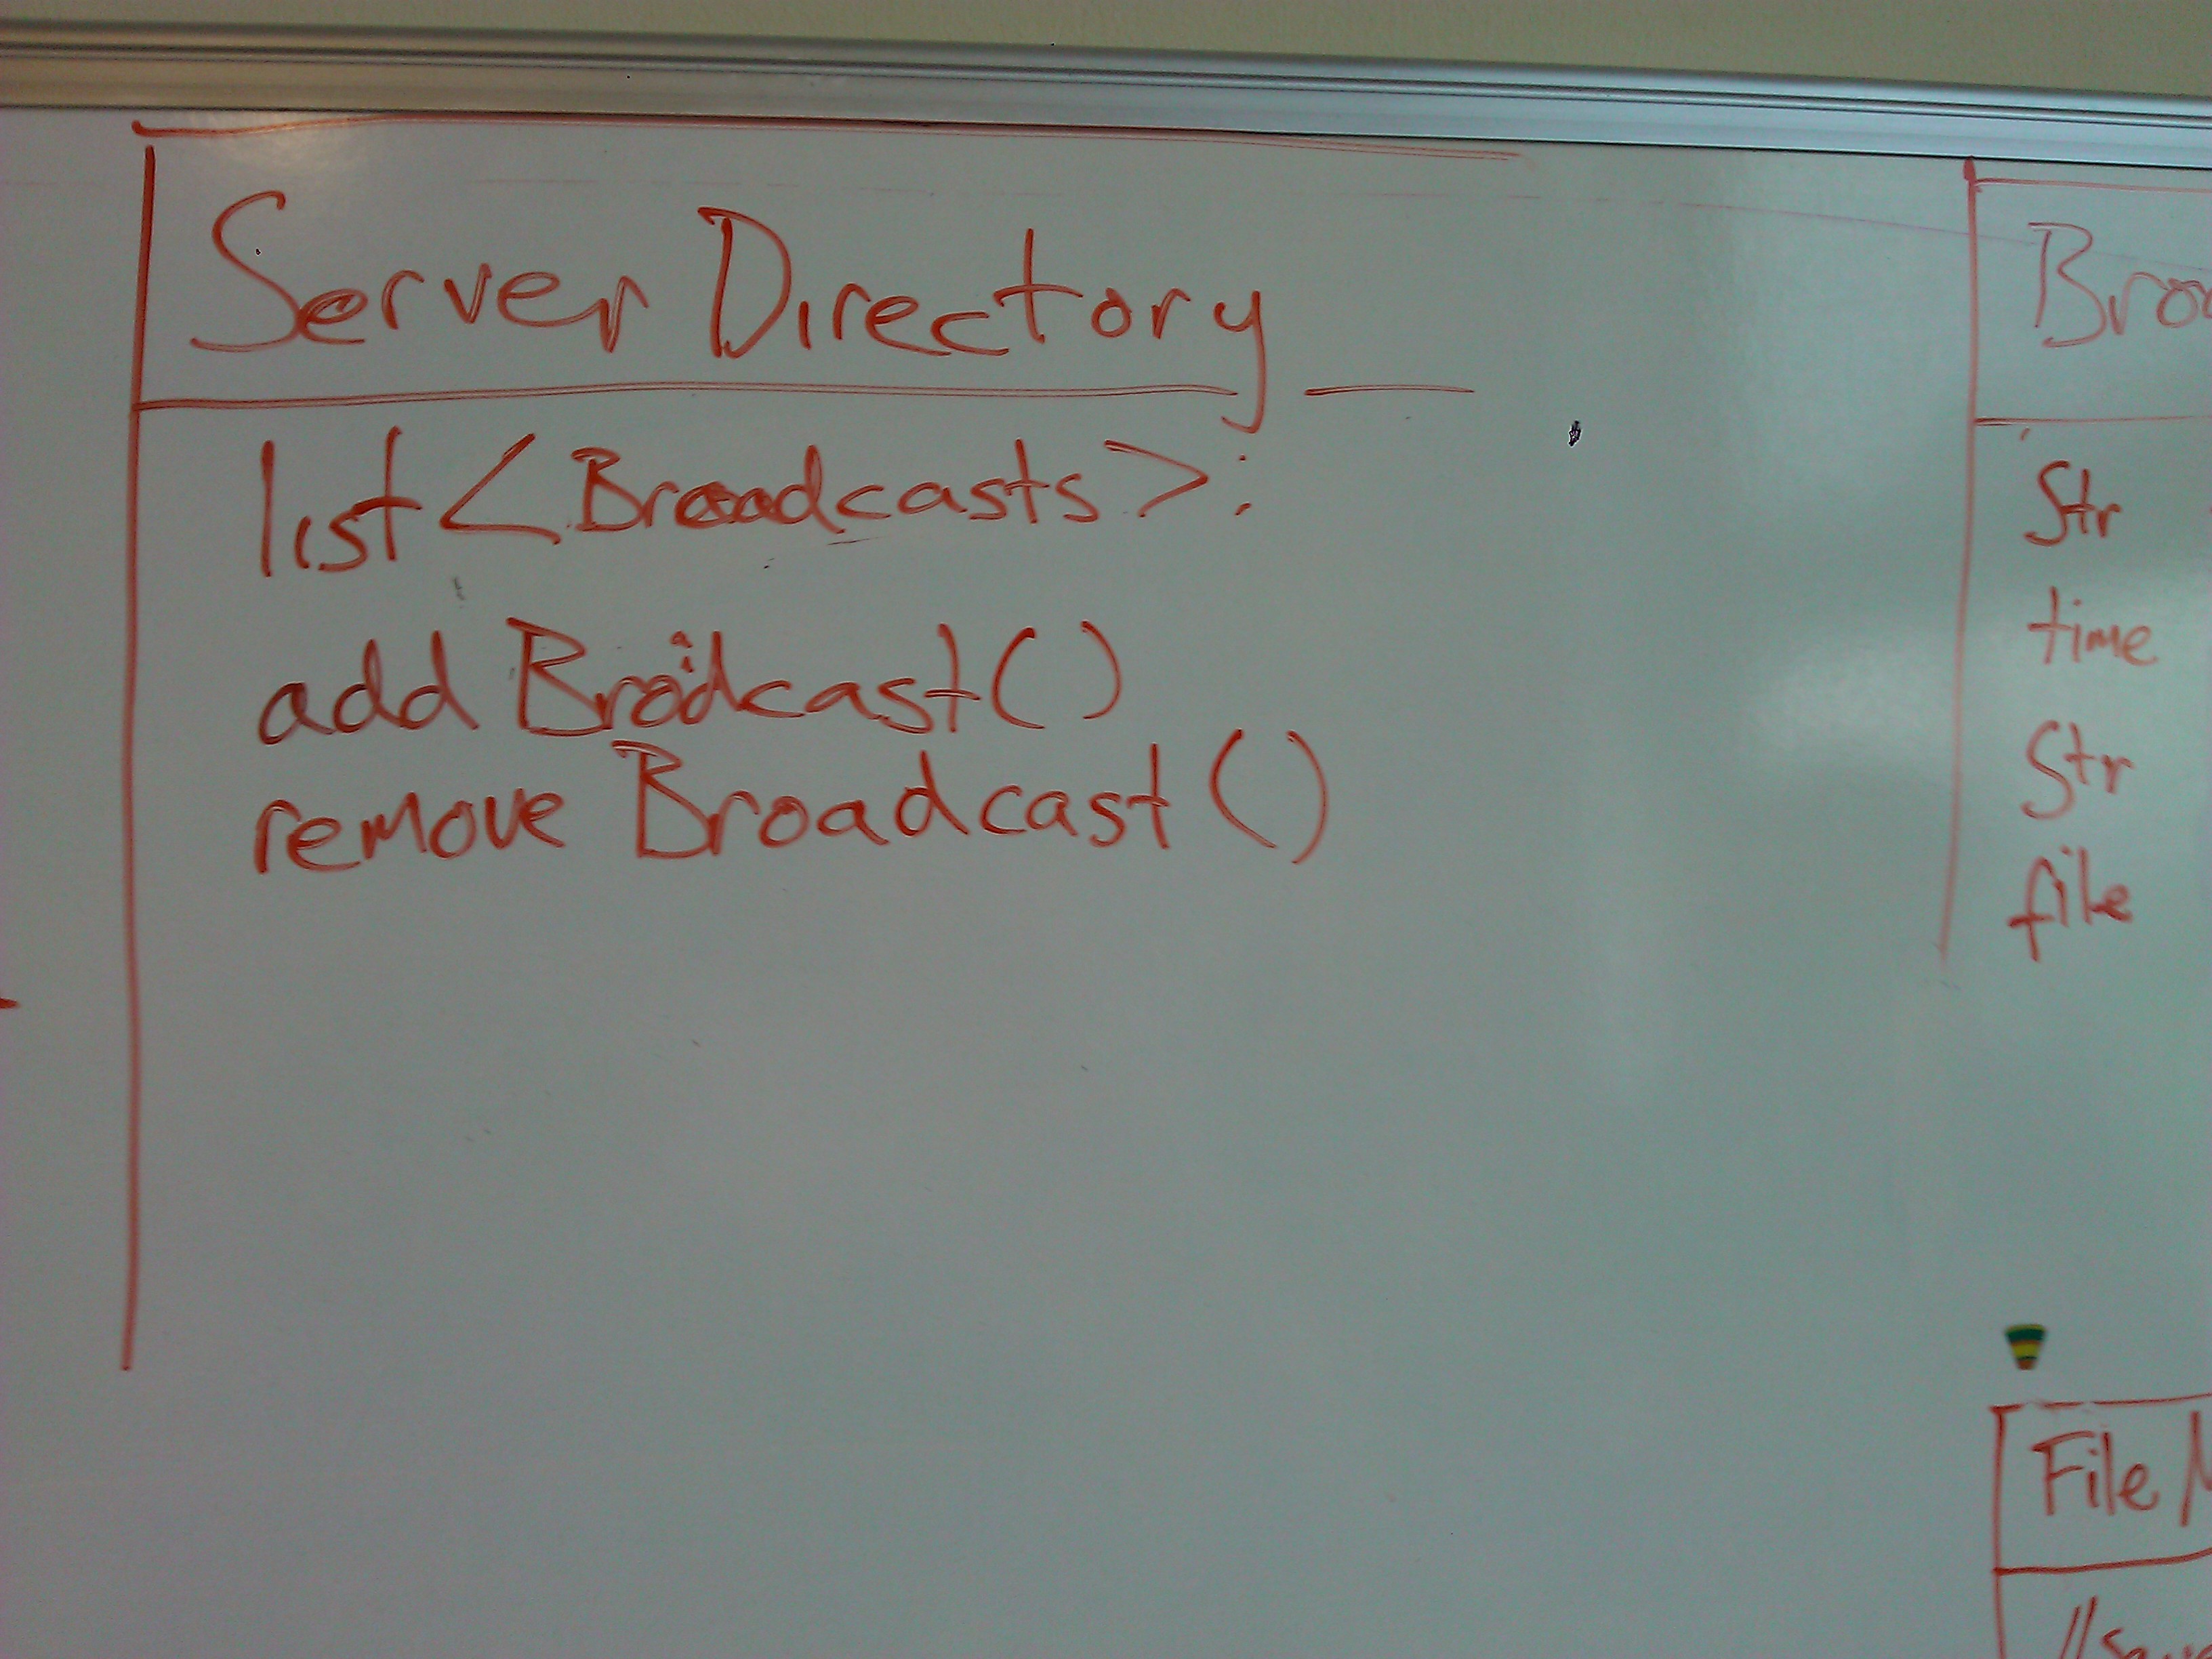 Server Directory
list <Broadcasts>:
add Broadcast()
remove Broadcast()
Str
time
Str
file
File